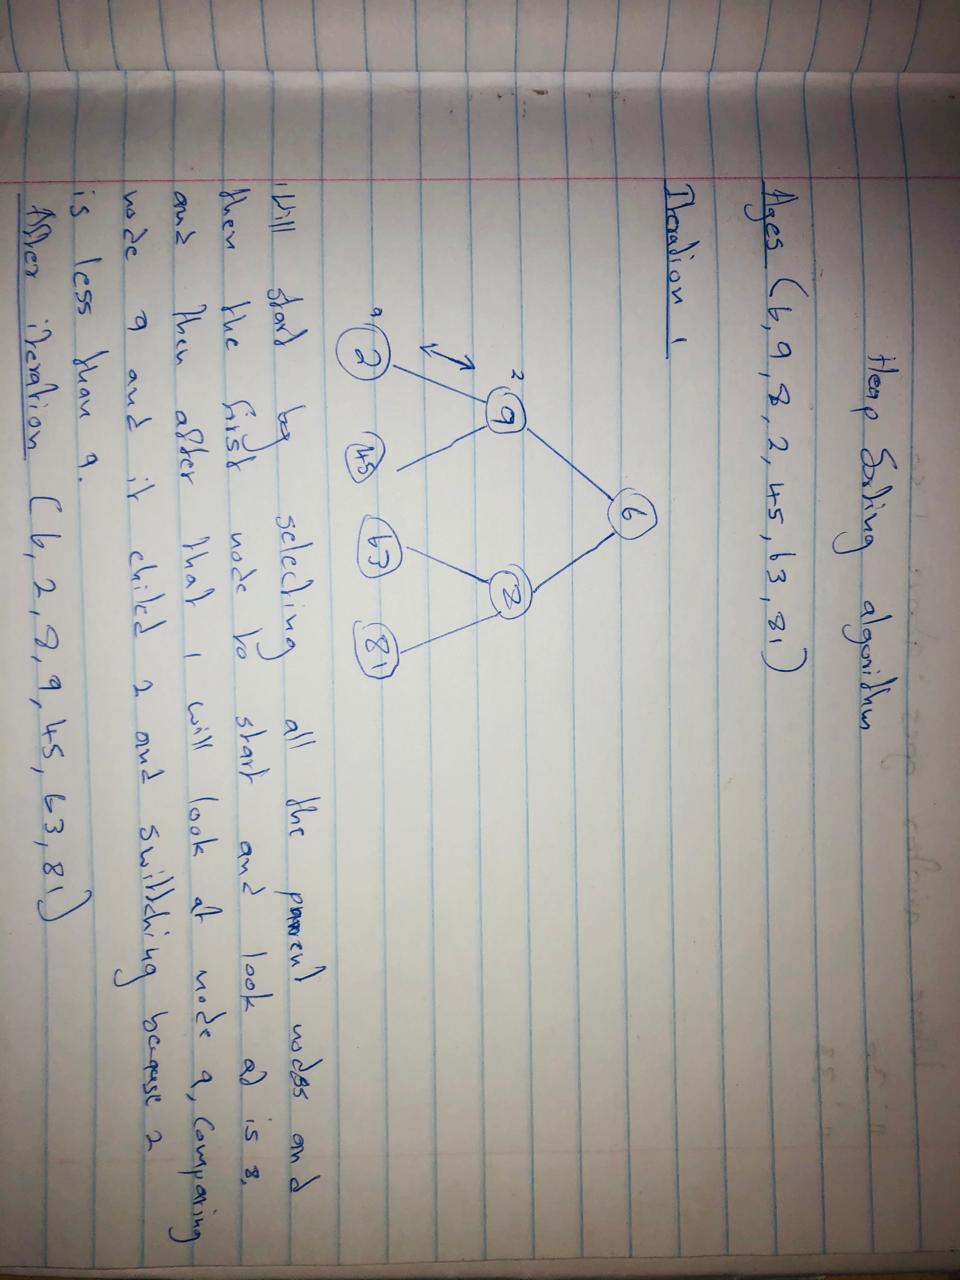 Heap Sorting algorithm
Ages (6, 9, 8, 2, 45, 63, 81)
Iteration 1
6
2 9 8
9 2 45 63 81
I Will start by selecting all the parrent nodes and
then the first node to start and look at is 8,
and then after that I will look at node 9, Comparing
node 9 and it chiled 2 and swiltching because 2
is less than 9.
After iteration (6, 2, 8, 9, 45, 63, 81)